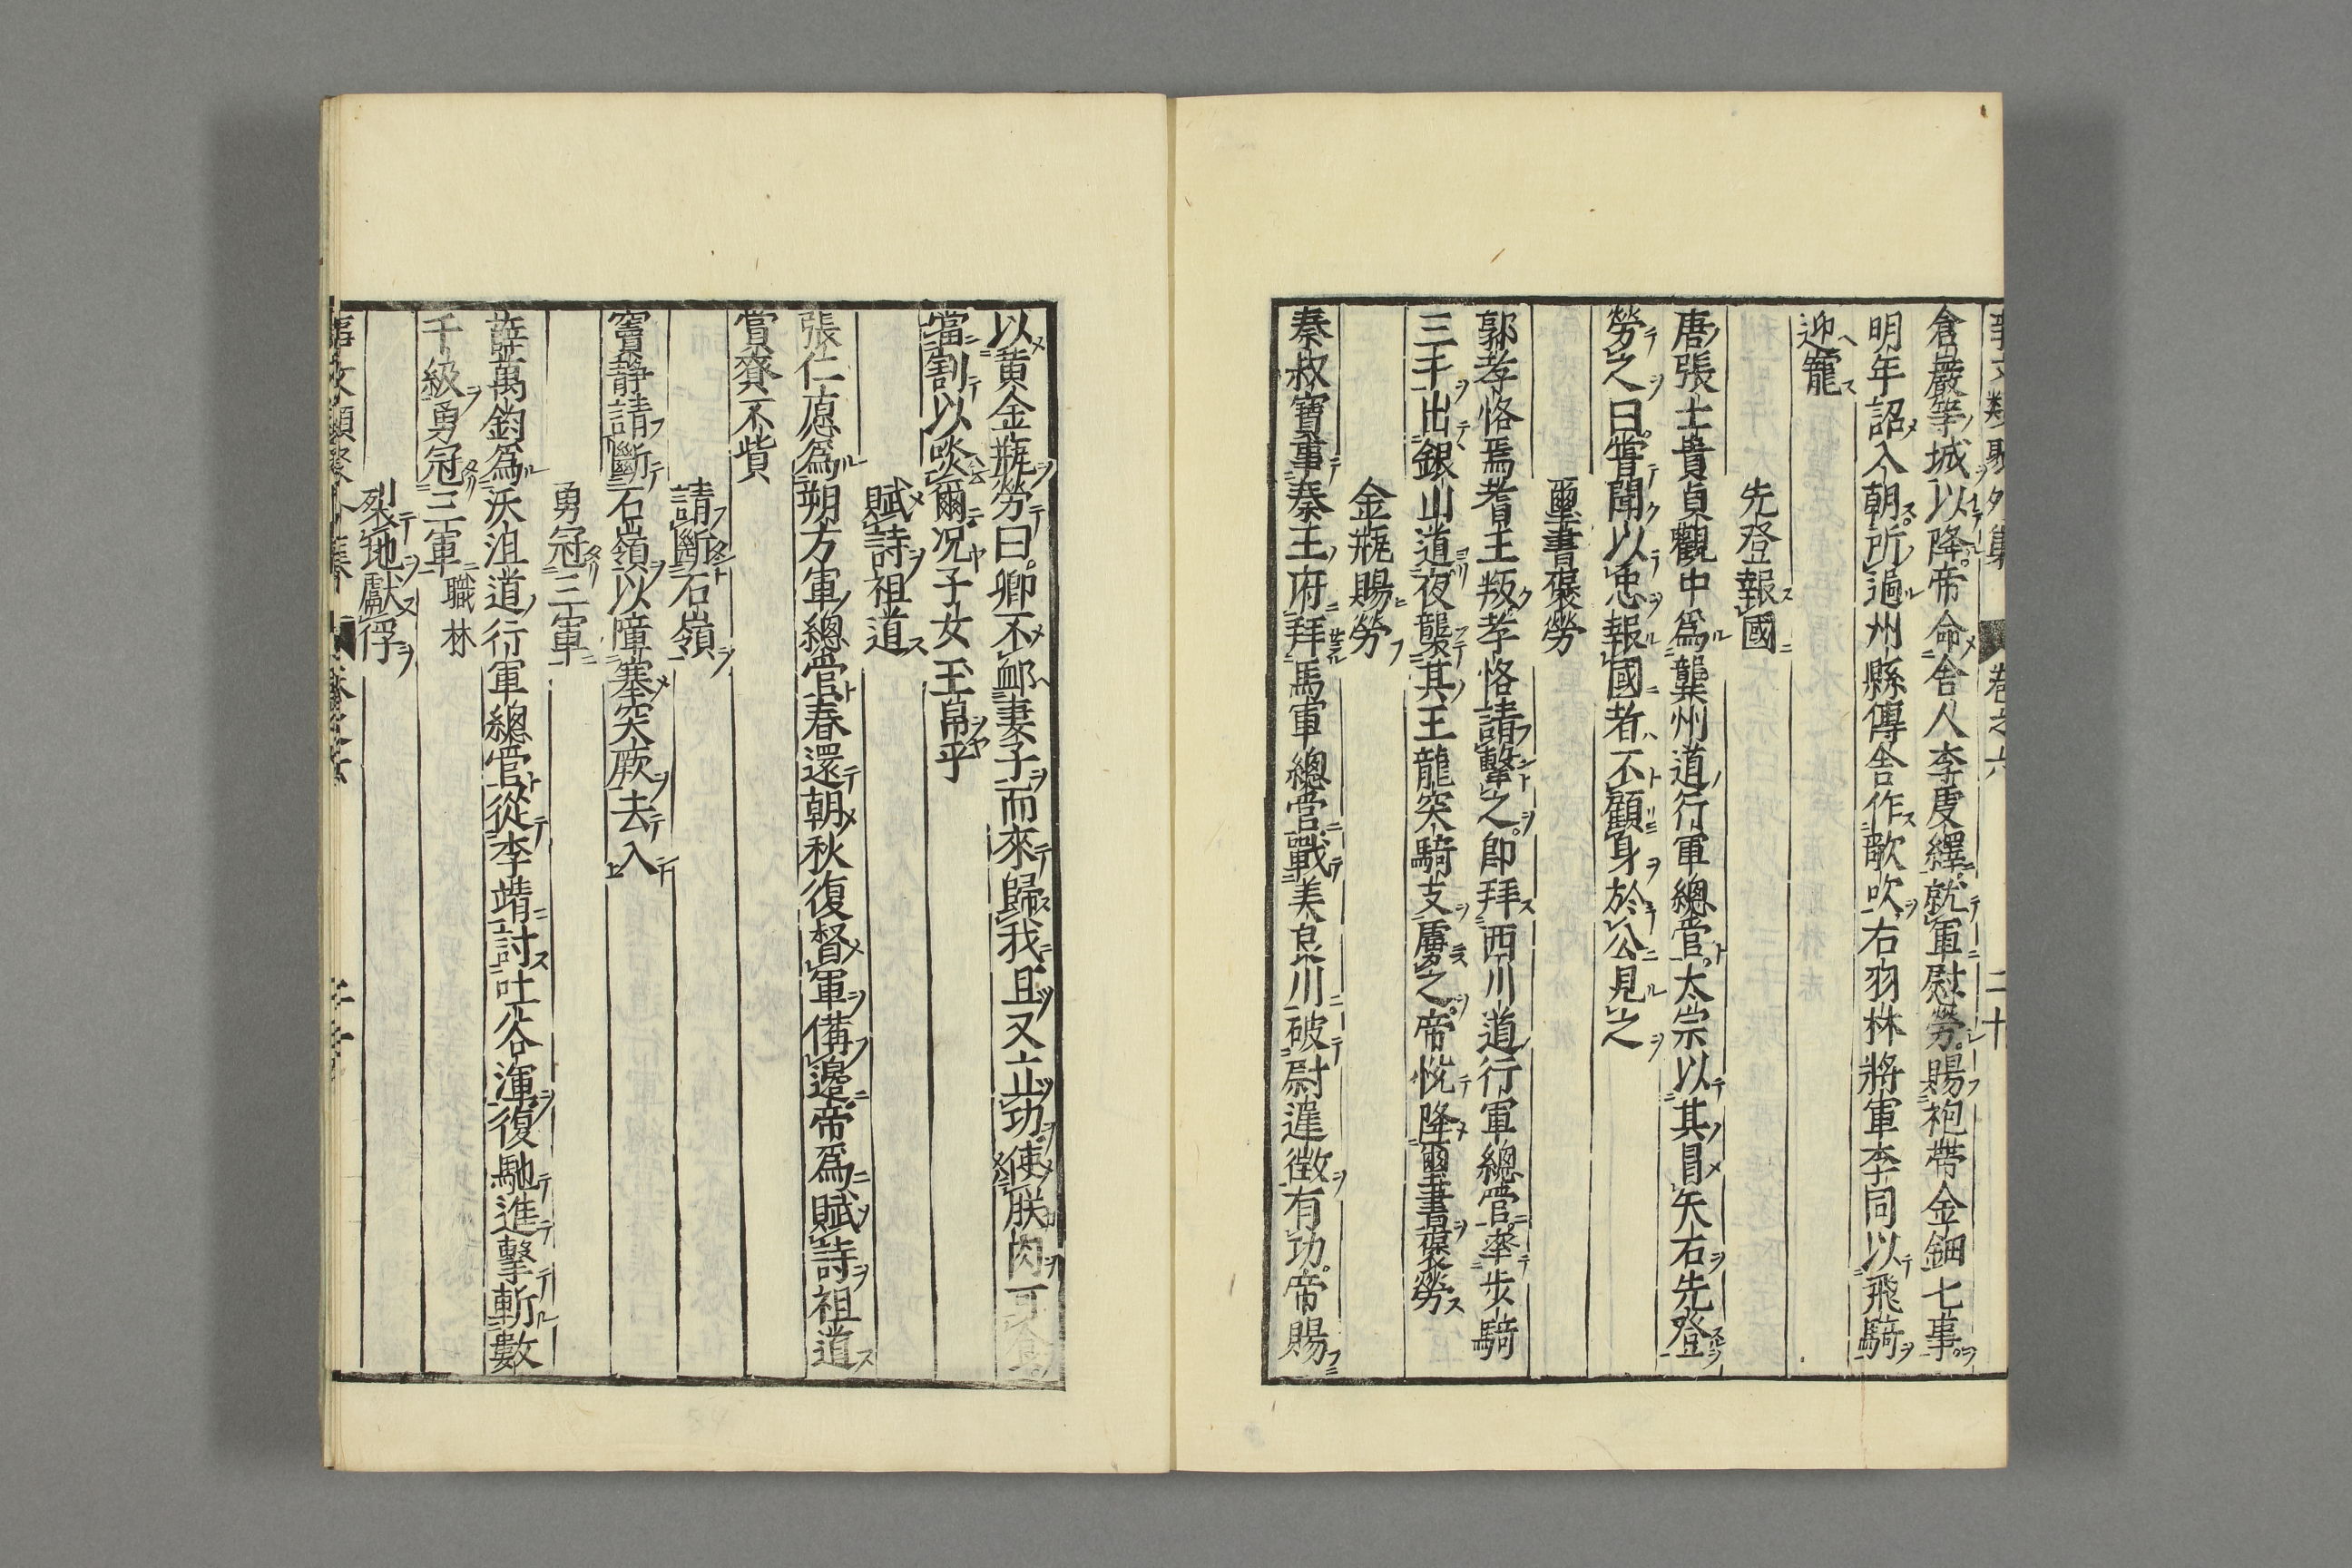 事文類聚外集 卷之六 二十
倉嚴等城以降帝命舍人李虔繹就軍慰勞賜袍帶金鈿七事
明年詔入朝所過州縣傳舍作歌吹右羽林將軍李同以飛騎
迎寵
先登報國
唐張士貴貞觀中爲龔州道行軍總管太宗以其冒矢石先登
勞之曰嘗聞以忠報國者不顧身於公見之
璽書襃勞
郭孝恪焉耆王叛孝恪請擊之即拜西川道行軍總管率步騎
三千出銀山道夜襲其王龍突騎支虜之帝悅降璽書襃勞
金瓶賜勞
秦叔寶事秦王府拜馬軍總管戰美良川破尉遲徴有功帝賜
以黃金瓶勞曰卿不䘏妻子而來歸我且又立功使朕肉可食
當割以啖爾况子女玉帛乎
賦詩祖道
張仁愿爲朔方軍總管春還朝秋復督軍備邊帝爲賦詩祖道
賞賚不貲
請斷石嶺
竇靜請斷石嶺以障塞突厥去入
勇冠三軍
薛萬鈞爲沃沮道行軍總管從李靖討吐谷渾復馳進擊斬數
千級勇冠三軍 職林
裂毦獻俘